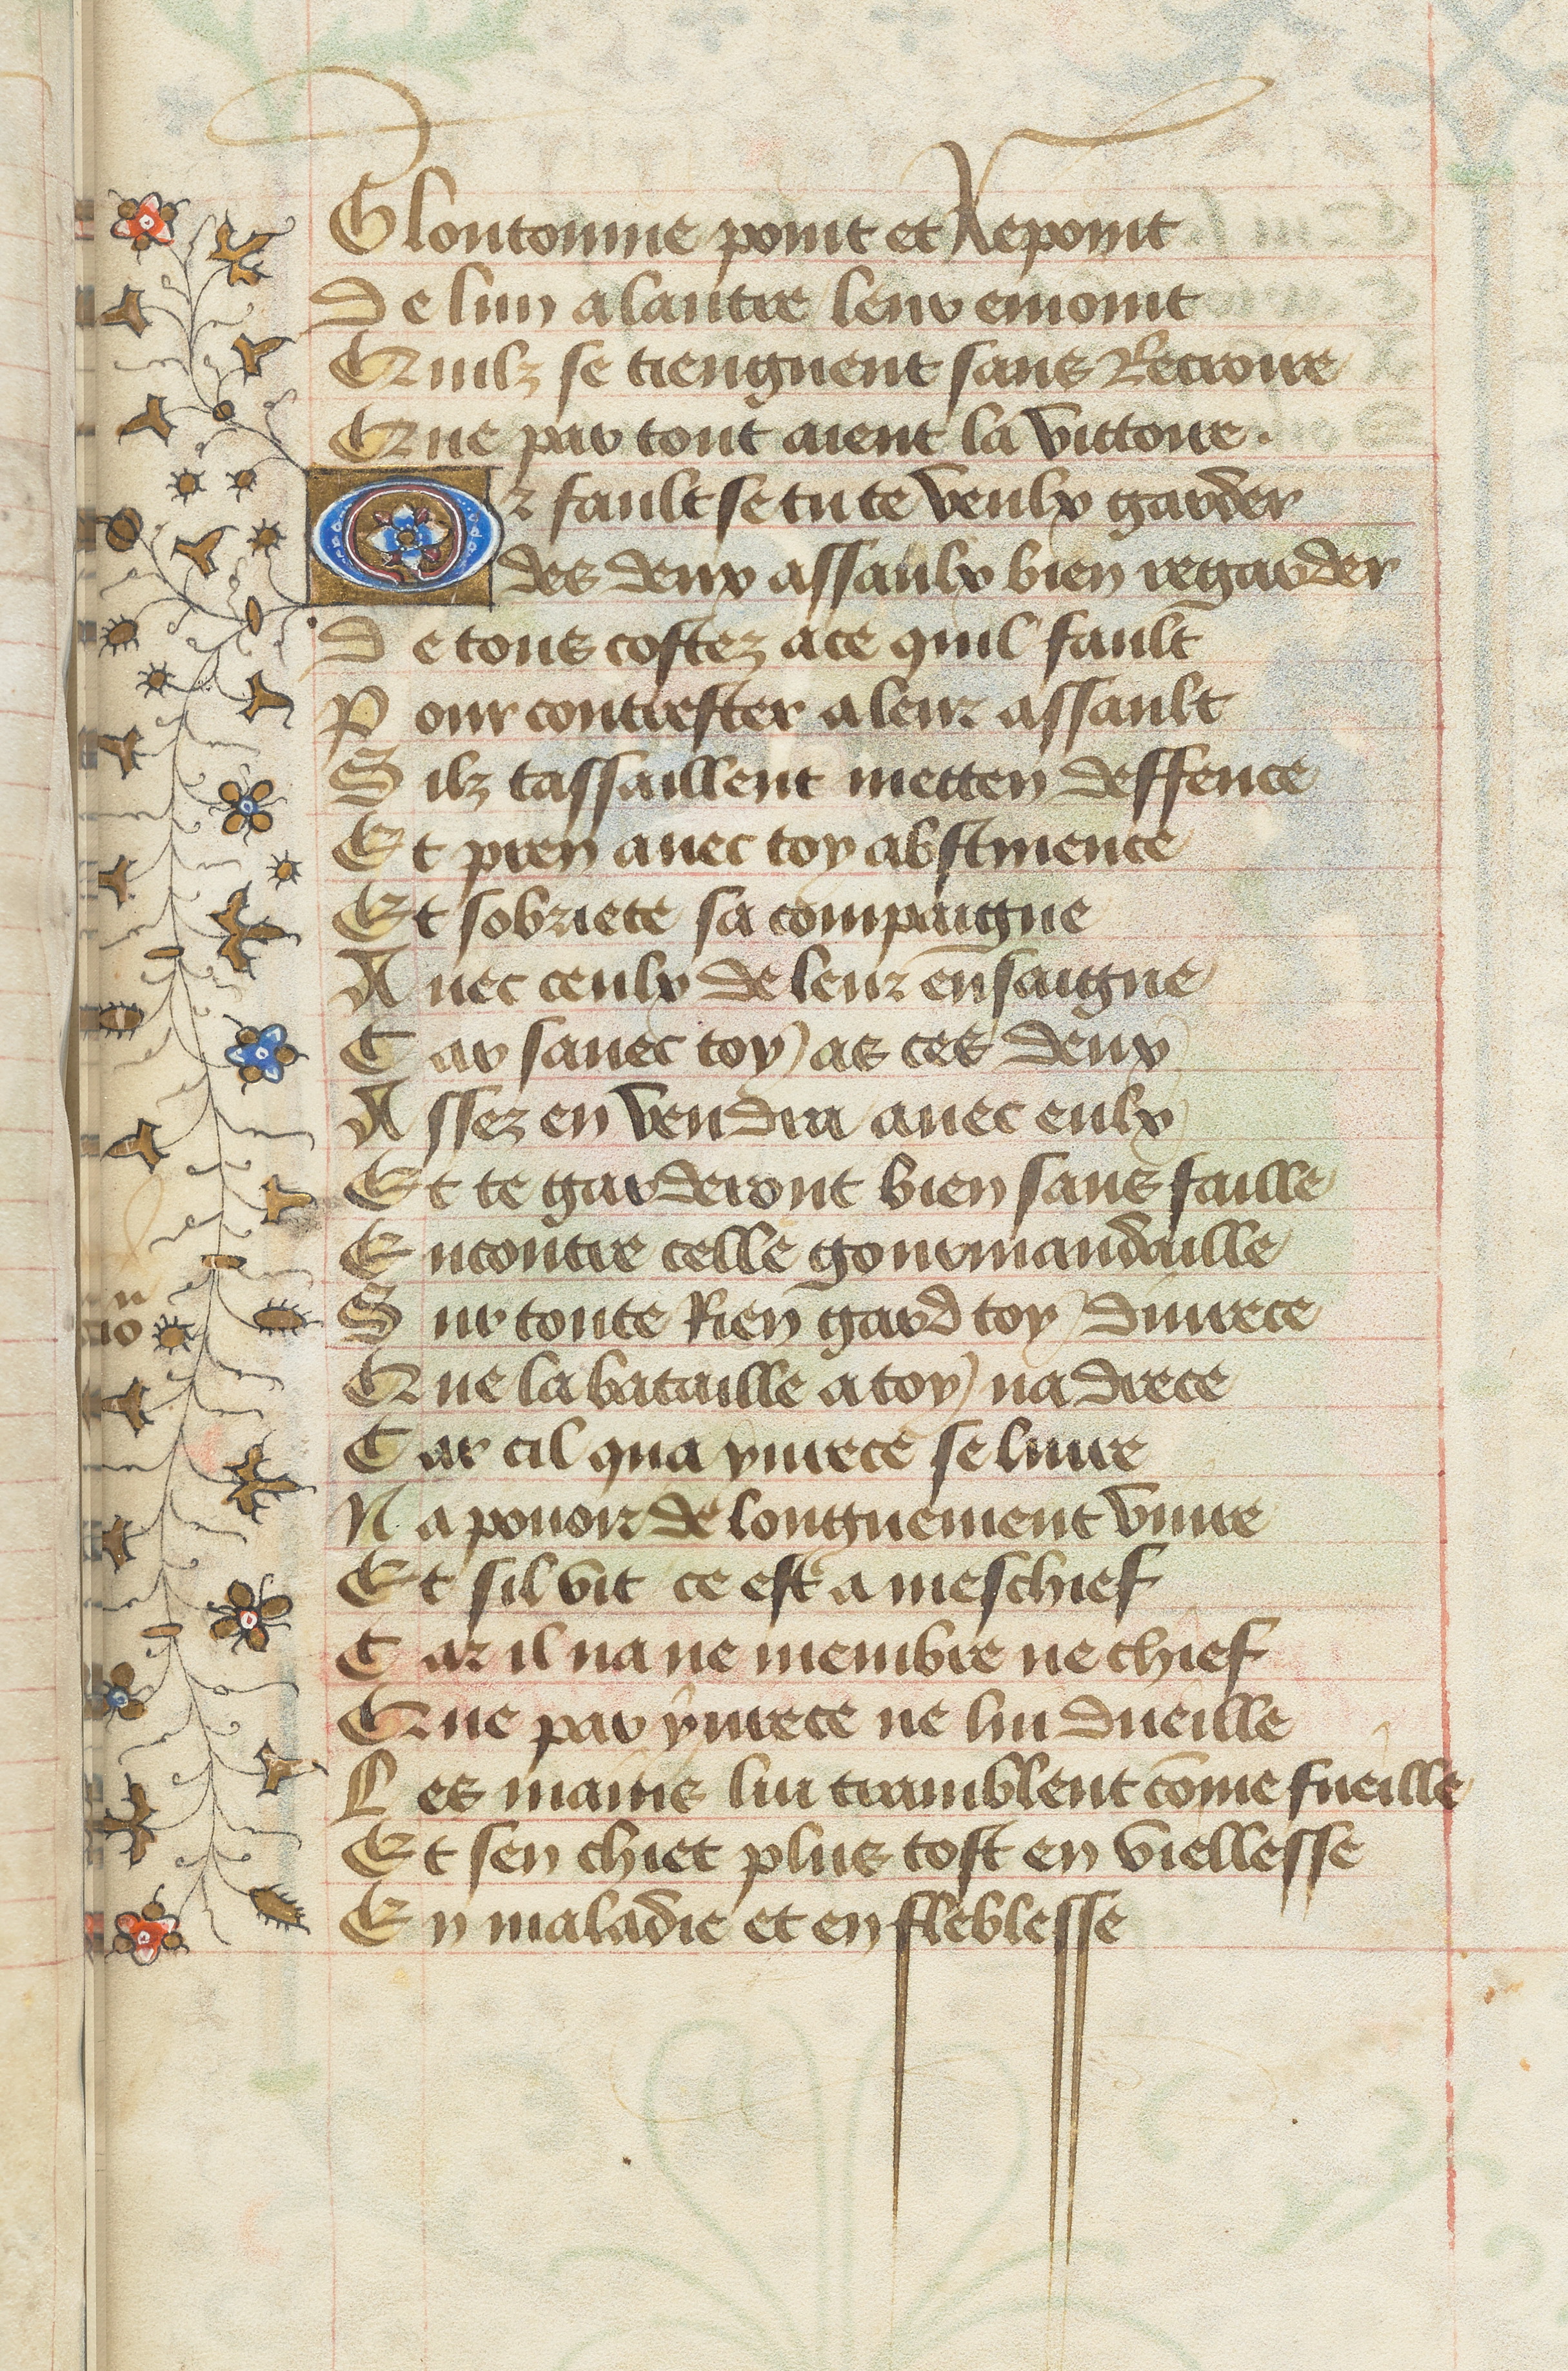 Gloutonnie point et Repoint
De lun a lautre leur enioint
Quilz se tienguent sans Recroire
Que par tout aient la victoire.
Or fault se tu te veulx garder
des deux assaulx bien regarder
De tous costez a ce quil fault
Pour contrester a leur assault
Silz tassaillent metten deffence
Et pren auec toy abstinence
Et sobriete sa compaigne
Auec ceulx de leur ensaigne
Car sauec toy as ces deux
Assez en vendra auec eulx
Et te garderont bien sans faille
Encontre celle gourmandaille
Sur toute Rien gard toy diurece
Que la bataille a toy nadrece
Car cil qua yurece se liure
Na pouoir de longuement viure
Et sil vit ce est a meschief
Car il na ne membre ne chief
Que par yurece ne lui dueille
Les mains lui tramblent cōme fueille
Et sen chiet plus tost en viellesse
En maladie et en fleblesse